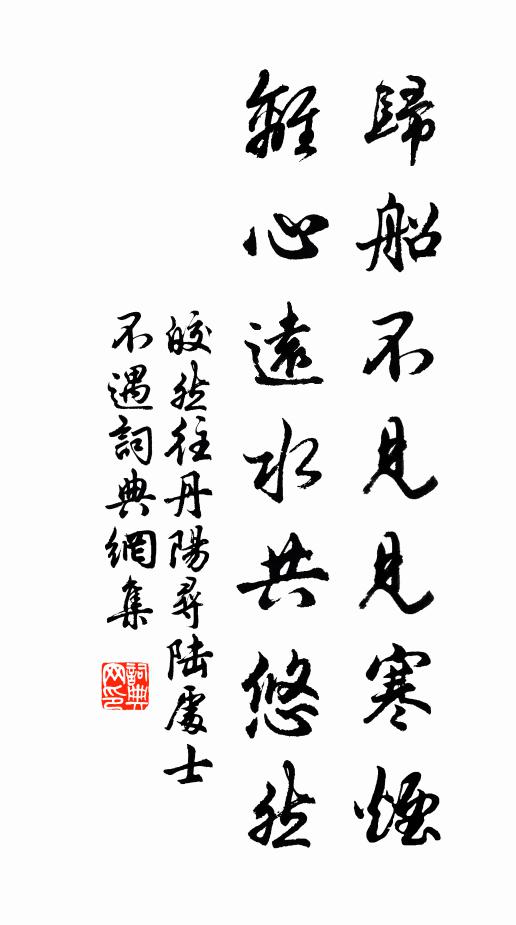 歸船不見見寒煙
離心遠水共悠然
皎然往丹陽尋陸處士
不遇詞典網集
詞典網印